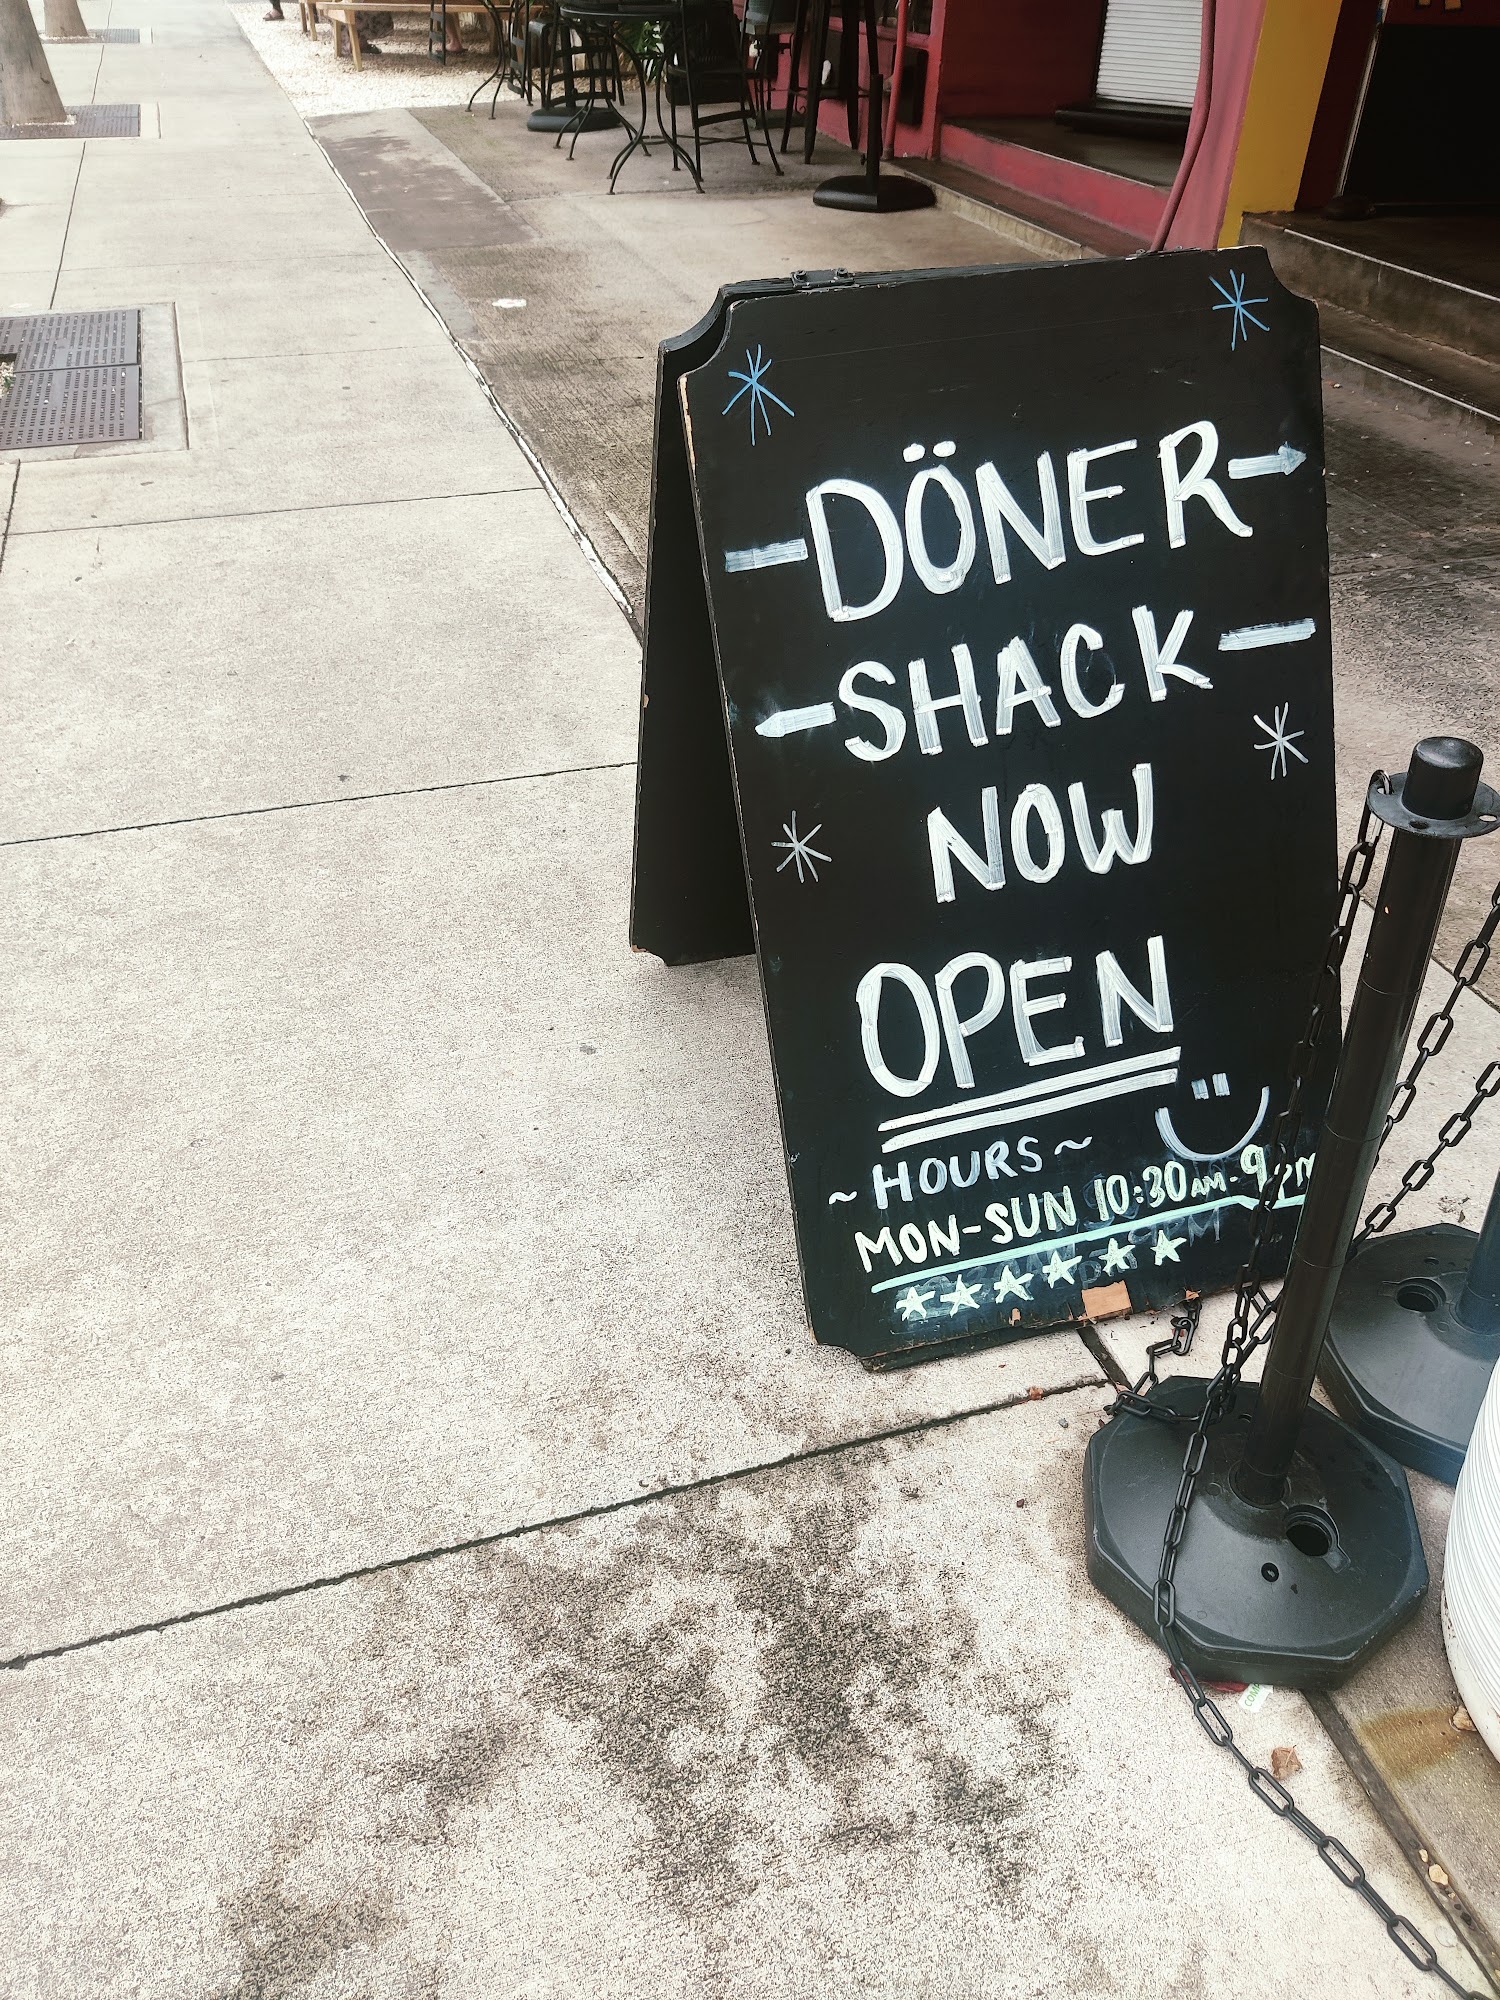 DÖNER
SHACK
NOW
OPEN
~HOURS~
MON-SUN 10:30AM-9PM